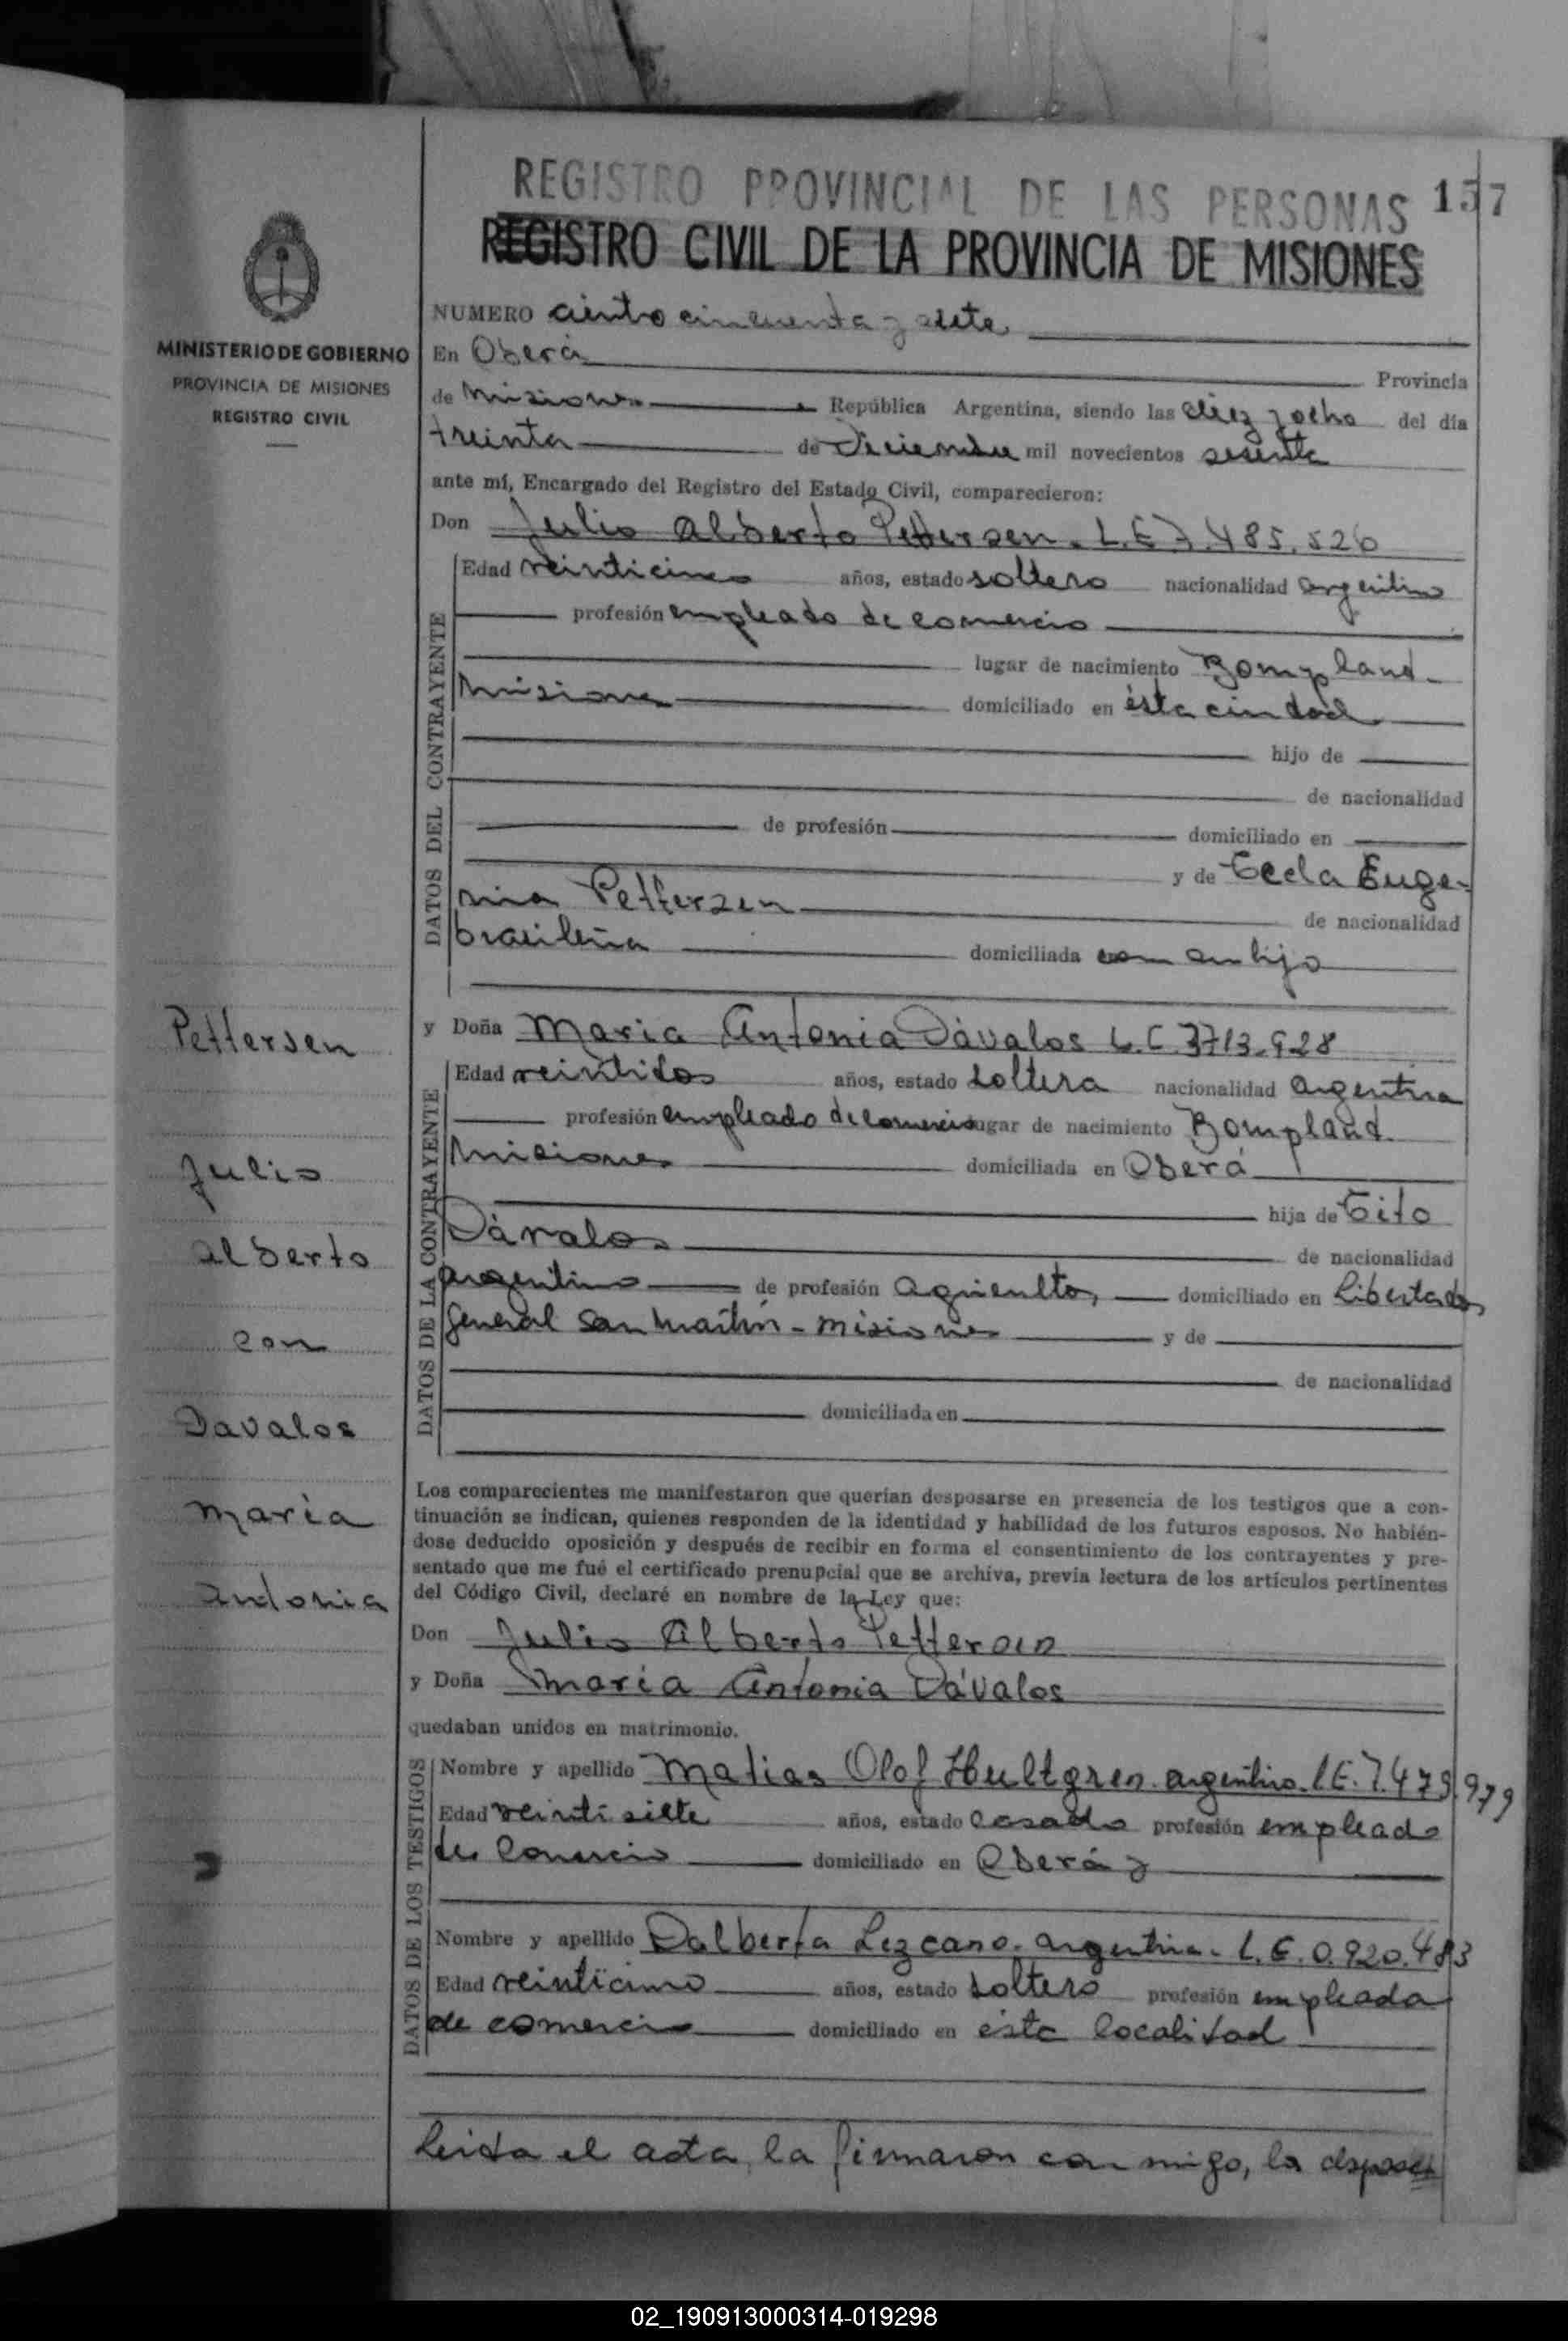 REGISTRO PROVINCIAL DE LAS PERSONAS 157
REGISTRO CIVIL DE LA PROVINCIA DE MISIONES
MINISTERIO DE GOBIERNO
PROVINCIA DE MISIONES
REGISTRO CIVIL
NUMERO ciento cincuenta y siete
En Oberá Provincia
de Misiones República Argentina, siendo las diez y ocho del día
treinta de Diciembre mil novecientos sesenta
ante mí, Encargado del Registro del Estado Civil, comparecieron:
Don Julio Alberto Pettersen. L.E 7.485.526
DATOS DEL CONTRAYENTE
Edad veinticinco años, estado soltero nacionalidad argentino
profesión empleado de comercio
lugar de nacimiento Bompland
Misiones domiciliado en ésta ciudad
hijo de
de nacionalidad
de profesión domiciliado en
y de Tecla Euge-
nia Pettersen de nacionalidad
brasileña domiciliada con su hijo
y Doña Maria Antonia Dávalos L.C 3713.928
DATOS DE LA CONTRAYENTE
Edad veintidos años, estado soltera nacionalidad argentina
profesión empleado de comercio lugar de nacimiento Bompland
Misiones domiciliada en Oberá
hija de Tito
Dávalos de nacionalidad
argentino de profesión agricultor domiciliado en Libertador
General San Martín - Misiones y de
de nacionalidad
domiciliada en
Pettersen
Julio
Alberto
con
Davalos
Maria
Antonia
Los comparecientes me manifestaron que querían desposarse en presencia de los testigos que a con-
tinuación se indican, quienes responden de la identidad y habilidad de los futuros esposos. No habién-
dose deducido oposición y después de recibir en forma el consentimiento de los contrayentes y pre-
sentado que me fué el certificado prenupcial que se archiva, previa lectura de los artículos pertinentes
del Código Civil, declaré en nombre de la Ley que:
Don Julio Alberto Pettersen
y Doña Maria Antonia Dávalos
quedaban unidos en matrimonio.
DATOS DE LOS TESTIGOS
Nombre y apellido Matias Olof Hultgren. argentino. L.E. 7.479.979
Edad veinti siete años, estado casado profesión empleado
de Comercio domiciliado en Oberá y
Nombre y apellido Dalberta Lezcano. argentina. L.C. 0.920.483
Edad veinticinco años, estado soltero profesión empleada
de comercio domiciliado en ésta localidad
Leida el acta, la firmaron con migo, los
02_190913000314-019298